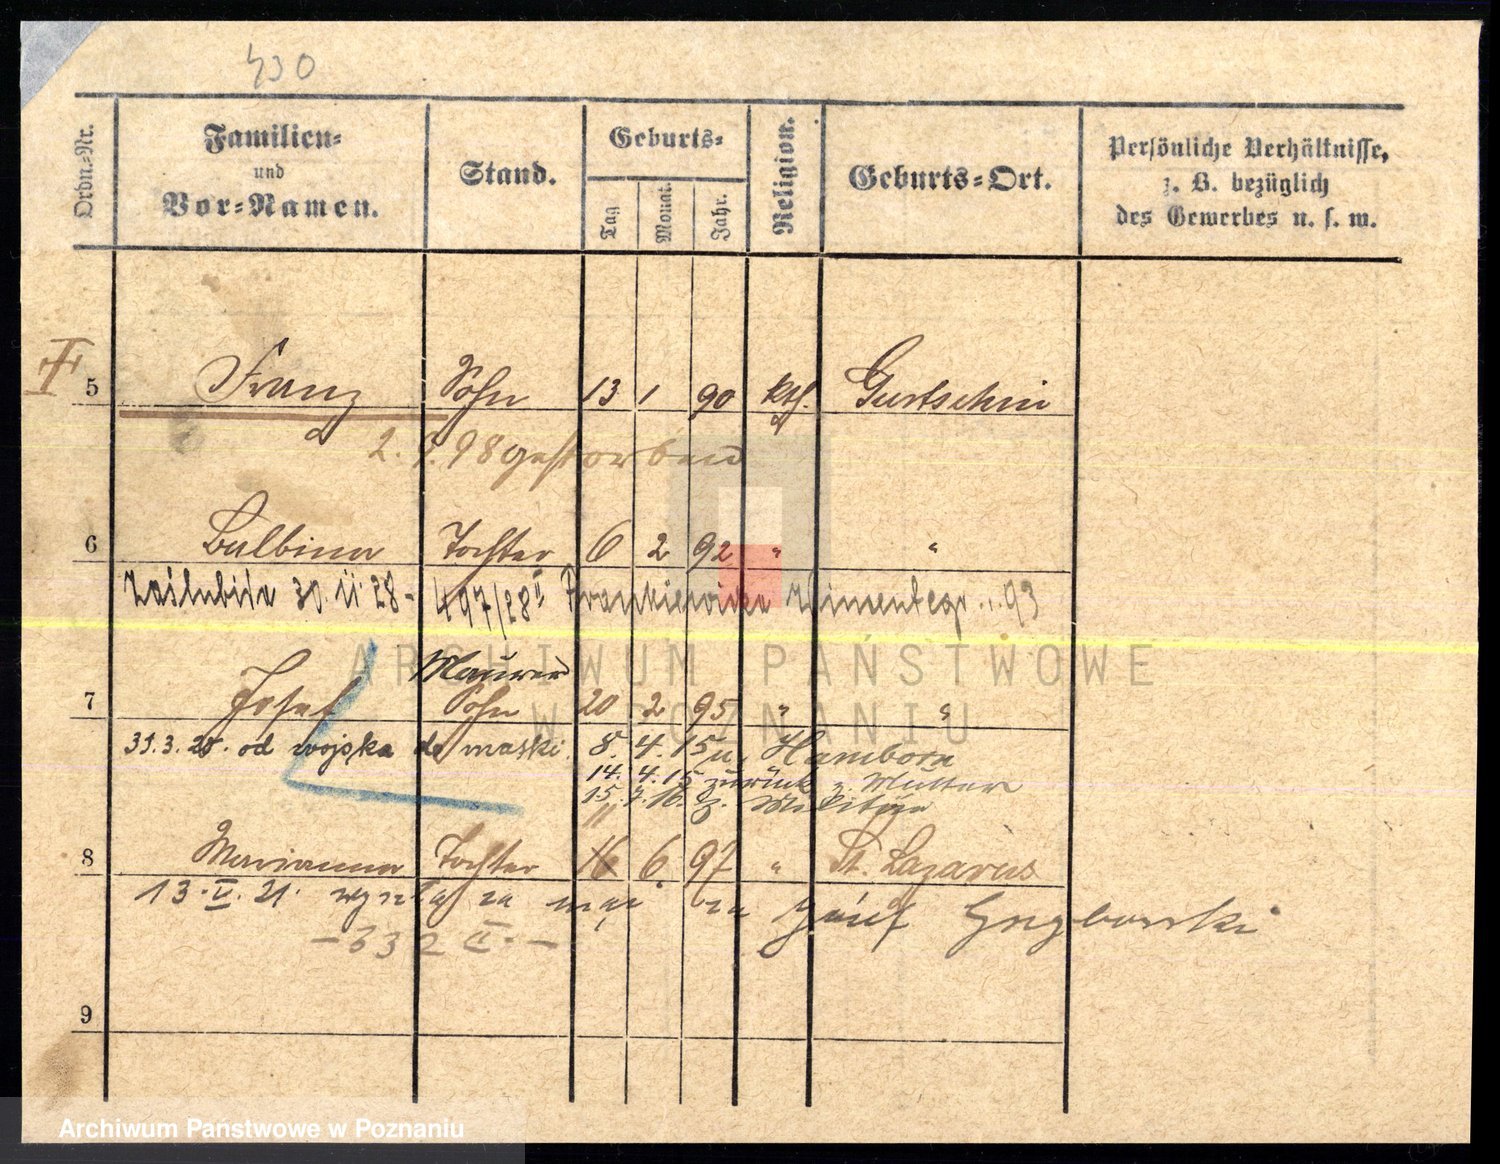 Ordn=Nr.
Familien=
und
Vor=Namen.
Stand.
Geburts=
Tag
Monat.
Jahr.
Religion.
Geburts=Ort.
Persönliche Verhältnisse,
z. B. bezüglich
des Gewerbes u. s. w.
5 Franz Sohn 13 1 90 kth. Gurtschin
2. 98 gestorben
6 Balbina Tochter 6 2 92 " "
Zaślubiła 30. 28 - 497/28 II 93
Maurer
7 Josef Sohn 20 2 95 " "
31.3.20. od wojska do maski. 8. 4. 15 n. Hamborn
14. 4. 15 zurück z. Mutter
15. 7. 16. z. Militär
8 Marianna Tochter 16 6. 97 " St. Lazarus
13. V. 21. za Józef Grzybowski
- 632 II. -
9
ARCHIWUM PAŃSTWOWE
W POZNANIU
Archiwum Państwowe w Poznaniu